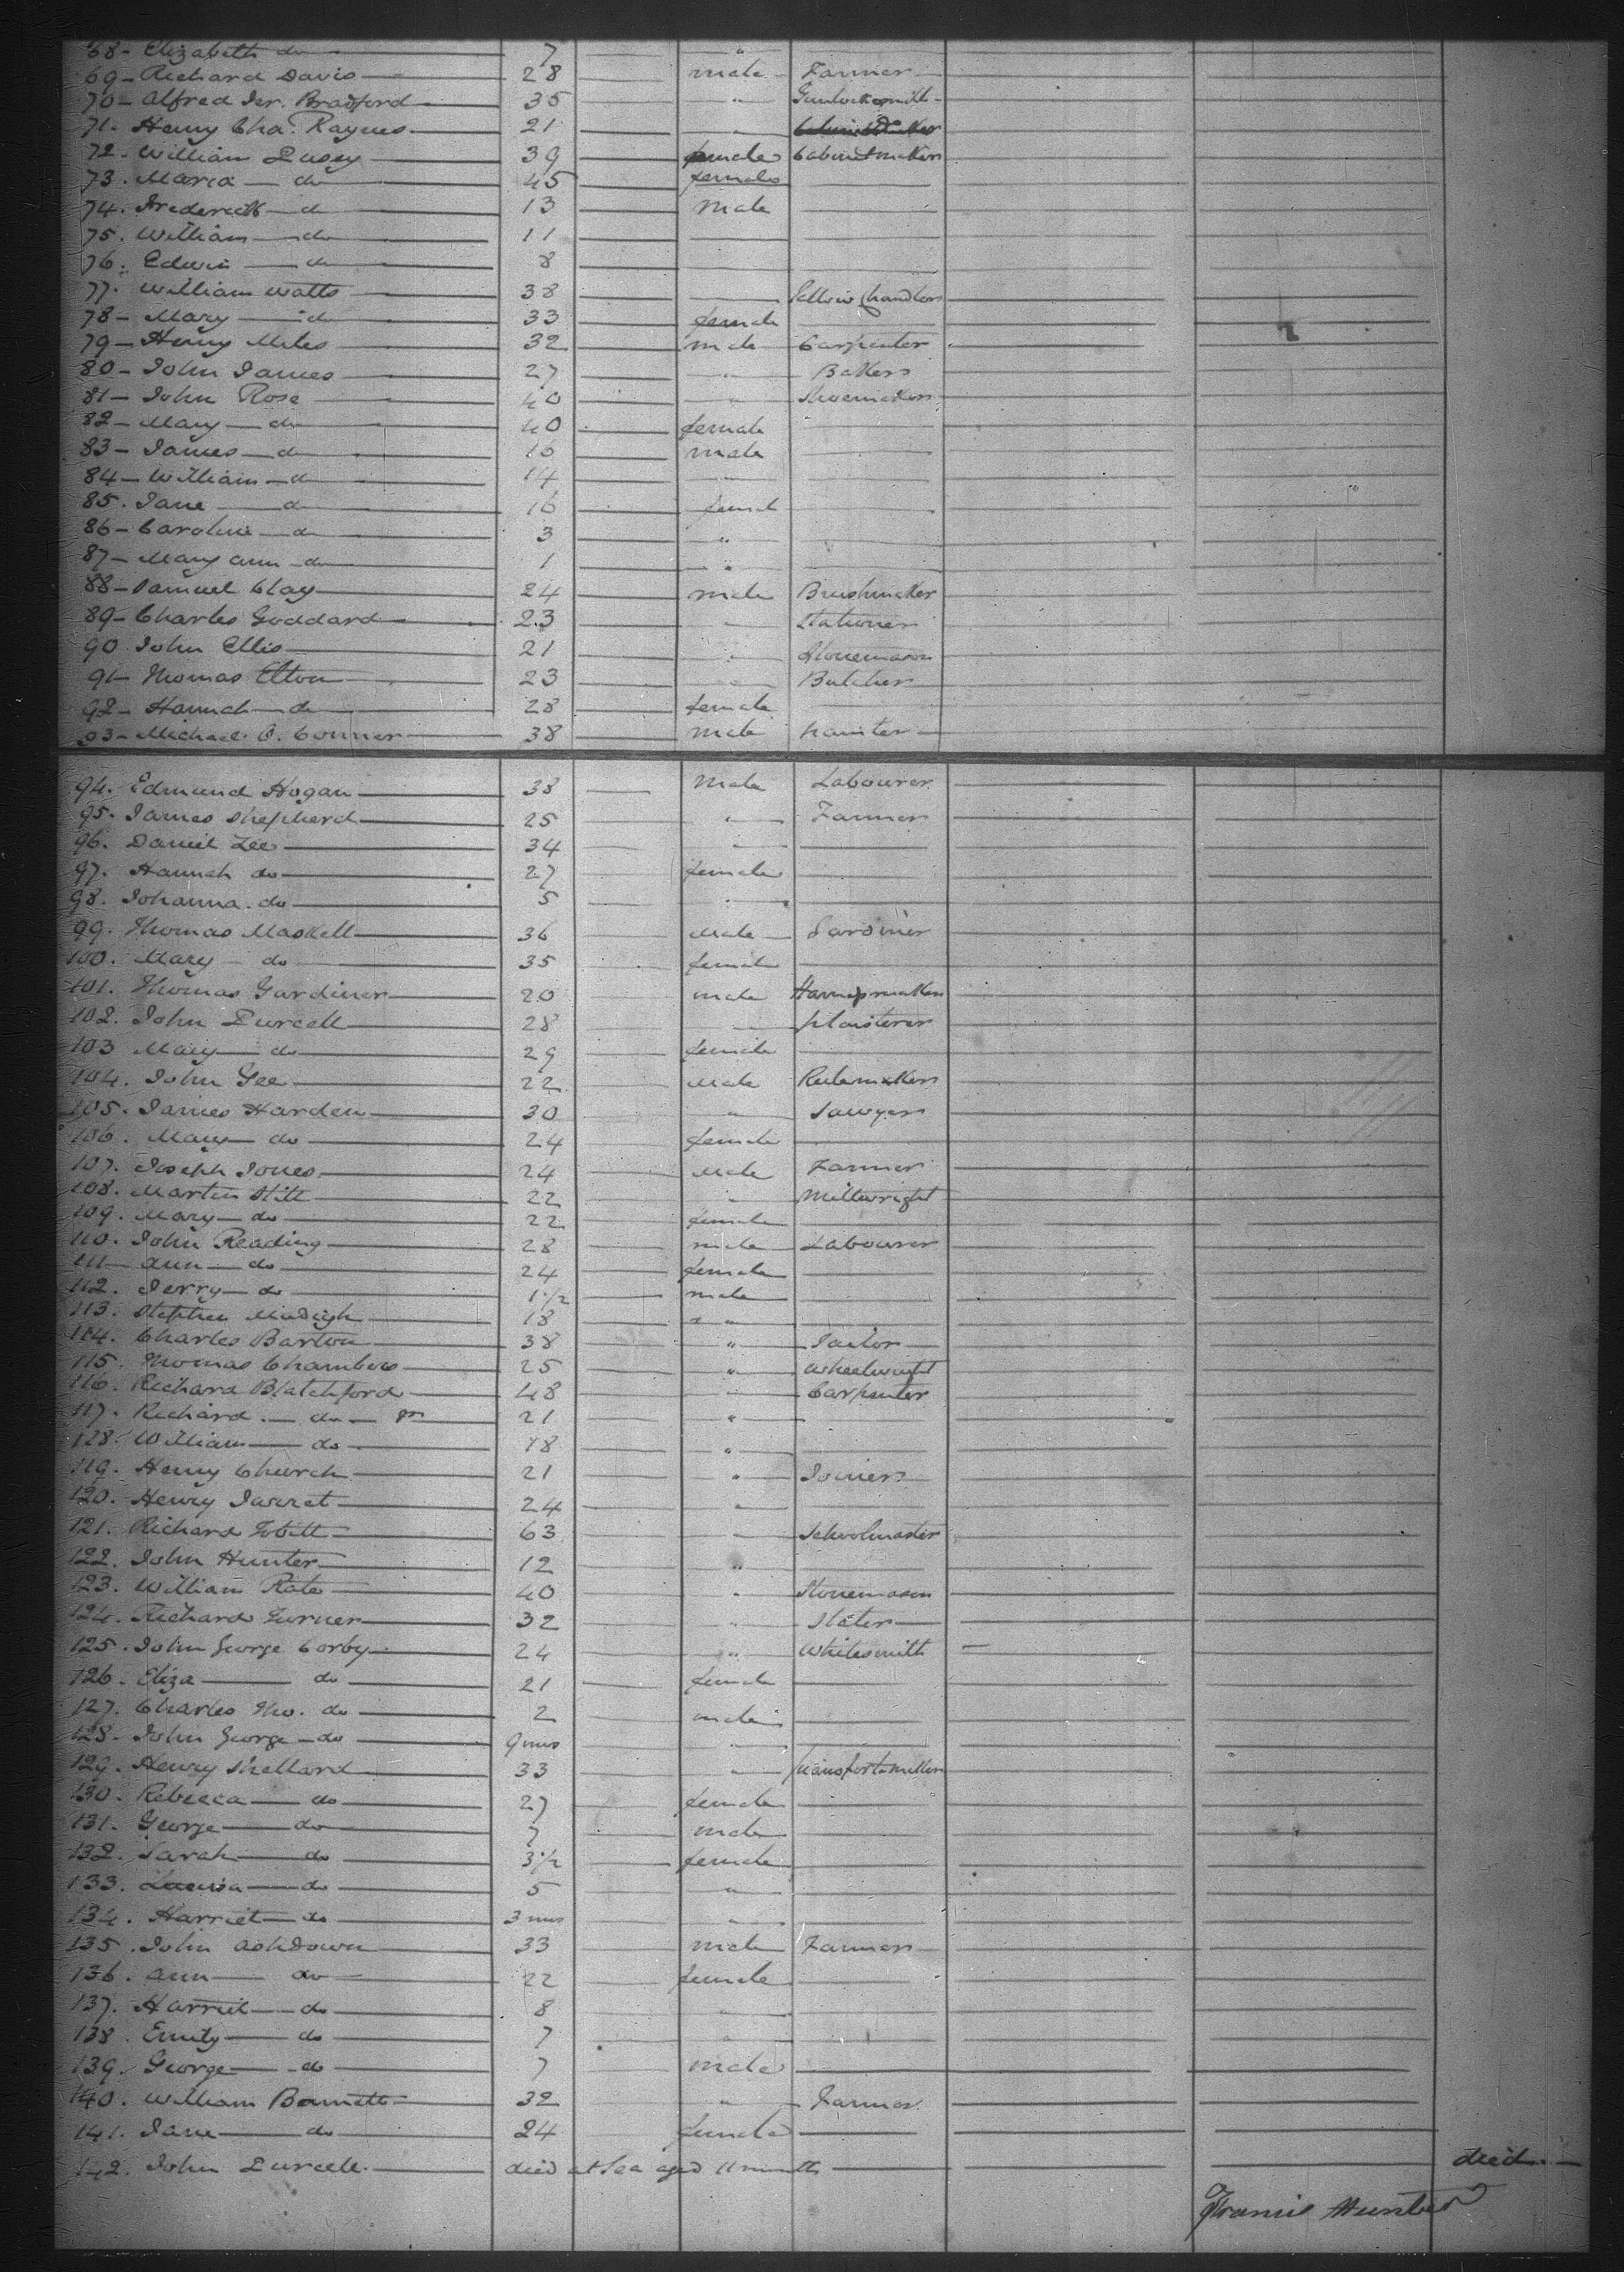 68- Elizabeth do 7 "
69- Richard Davis 28 male Farmer
70- Alfred Jer. Bradford 35 " Gunlocksmith
71. Henry Cha. Raynes 21
72. William Pusey 39 male Cabinetmaker
73. Maria do 45 female
74. Frederick do 13 Male
75. William do 11
76. Edwin do 8
77. William Watts 38 Tallow Chandler
78- Mary do 33 female
79- Henry Miles 32 male Carpenter
80- John James 27 " Baker
81- John Rose 40 " Shoemaker
82- Mary do 40 female
83- James do 16 male
84- William do 14
85. Jane do 16 female
86- Caroline do 3 "
87- Mary Ann do 1 "
88- Samuel Clay 24 male Brushmaker
89- Charles Goddard 23 " Stationer
90 John Ellis 21 " Stonemason
91- Thomas Elton 23 " Butcher
92- Hannah do 28 female
93- Michael O. Conner 38 male painter
94. Edmund Hogan 38 Male Labourer
95. James Shepherd 25 " Farmer
96. Daniel Lee 34 "
97. Hannah do 27 female
98. Johanna do 5 "
99. Thomas Maskell 36 Male Gardiner
100. Mary do 35 female
101. Thomas Gardiner 20 male Harnessmaker
102. John Purcell 28 plaisterer
103 Mary do 29 female
104. John Gee 22 Male Rulemaker
105. James Harden 30 " Sawyer
106. Mary do 24 female
107. Joseph Jones 24 Male Farmer
108. Martin Hill 22 " Millwright
109. Mary do 22 female
110. John Reading 28 male Labourer
111- Ann do 24 female
112. Jerry do 1 1/2 male
113. Stephen 18 "
114. Charles Barton 38 " Tailor
115. Thomas Chambers 25 " Wheelwright
116. Richard Blatchford 48 " Carpenter
117. Richard do 21 "
118. William do 18 "
119. Henry Church 21 " Joiner
120. Henry Jarret 24 "
121. Richard 63 " Schoolmaster
122. John Hunter 12 "
123. William Rate 40 " Stonemason
124. Richard Turner 32 " Slater
125. John George Corby 24 " Whitesmith
126. Eliza do 21 female
127. Charles Tho. do 2 male
128. John George do 9 mos "
129. Henry Shellard 33 "
130. Rebecca do 27 female
131. George do 7 male
132. Sarah do 3 1/2 female
133. Louisa do 5 "
134. Harriet do 3 mos "
135. John Ashdown 33 male Farmer
136. Ann do 22 female
137. Harriet do 8 "
138. Emily do 7 "
139. George do 7 male
140. William Barnett 32 " Farmer
141. Jane do 24 female
142. John Purcell. died at Sea aged 11 months died
Francis Hunter